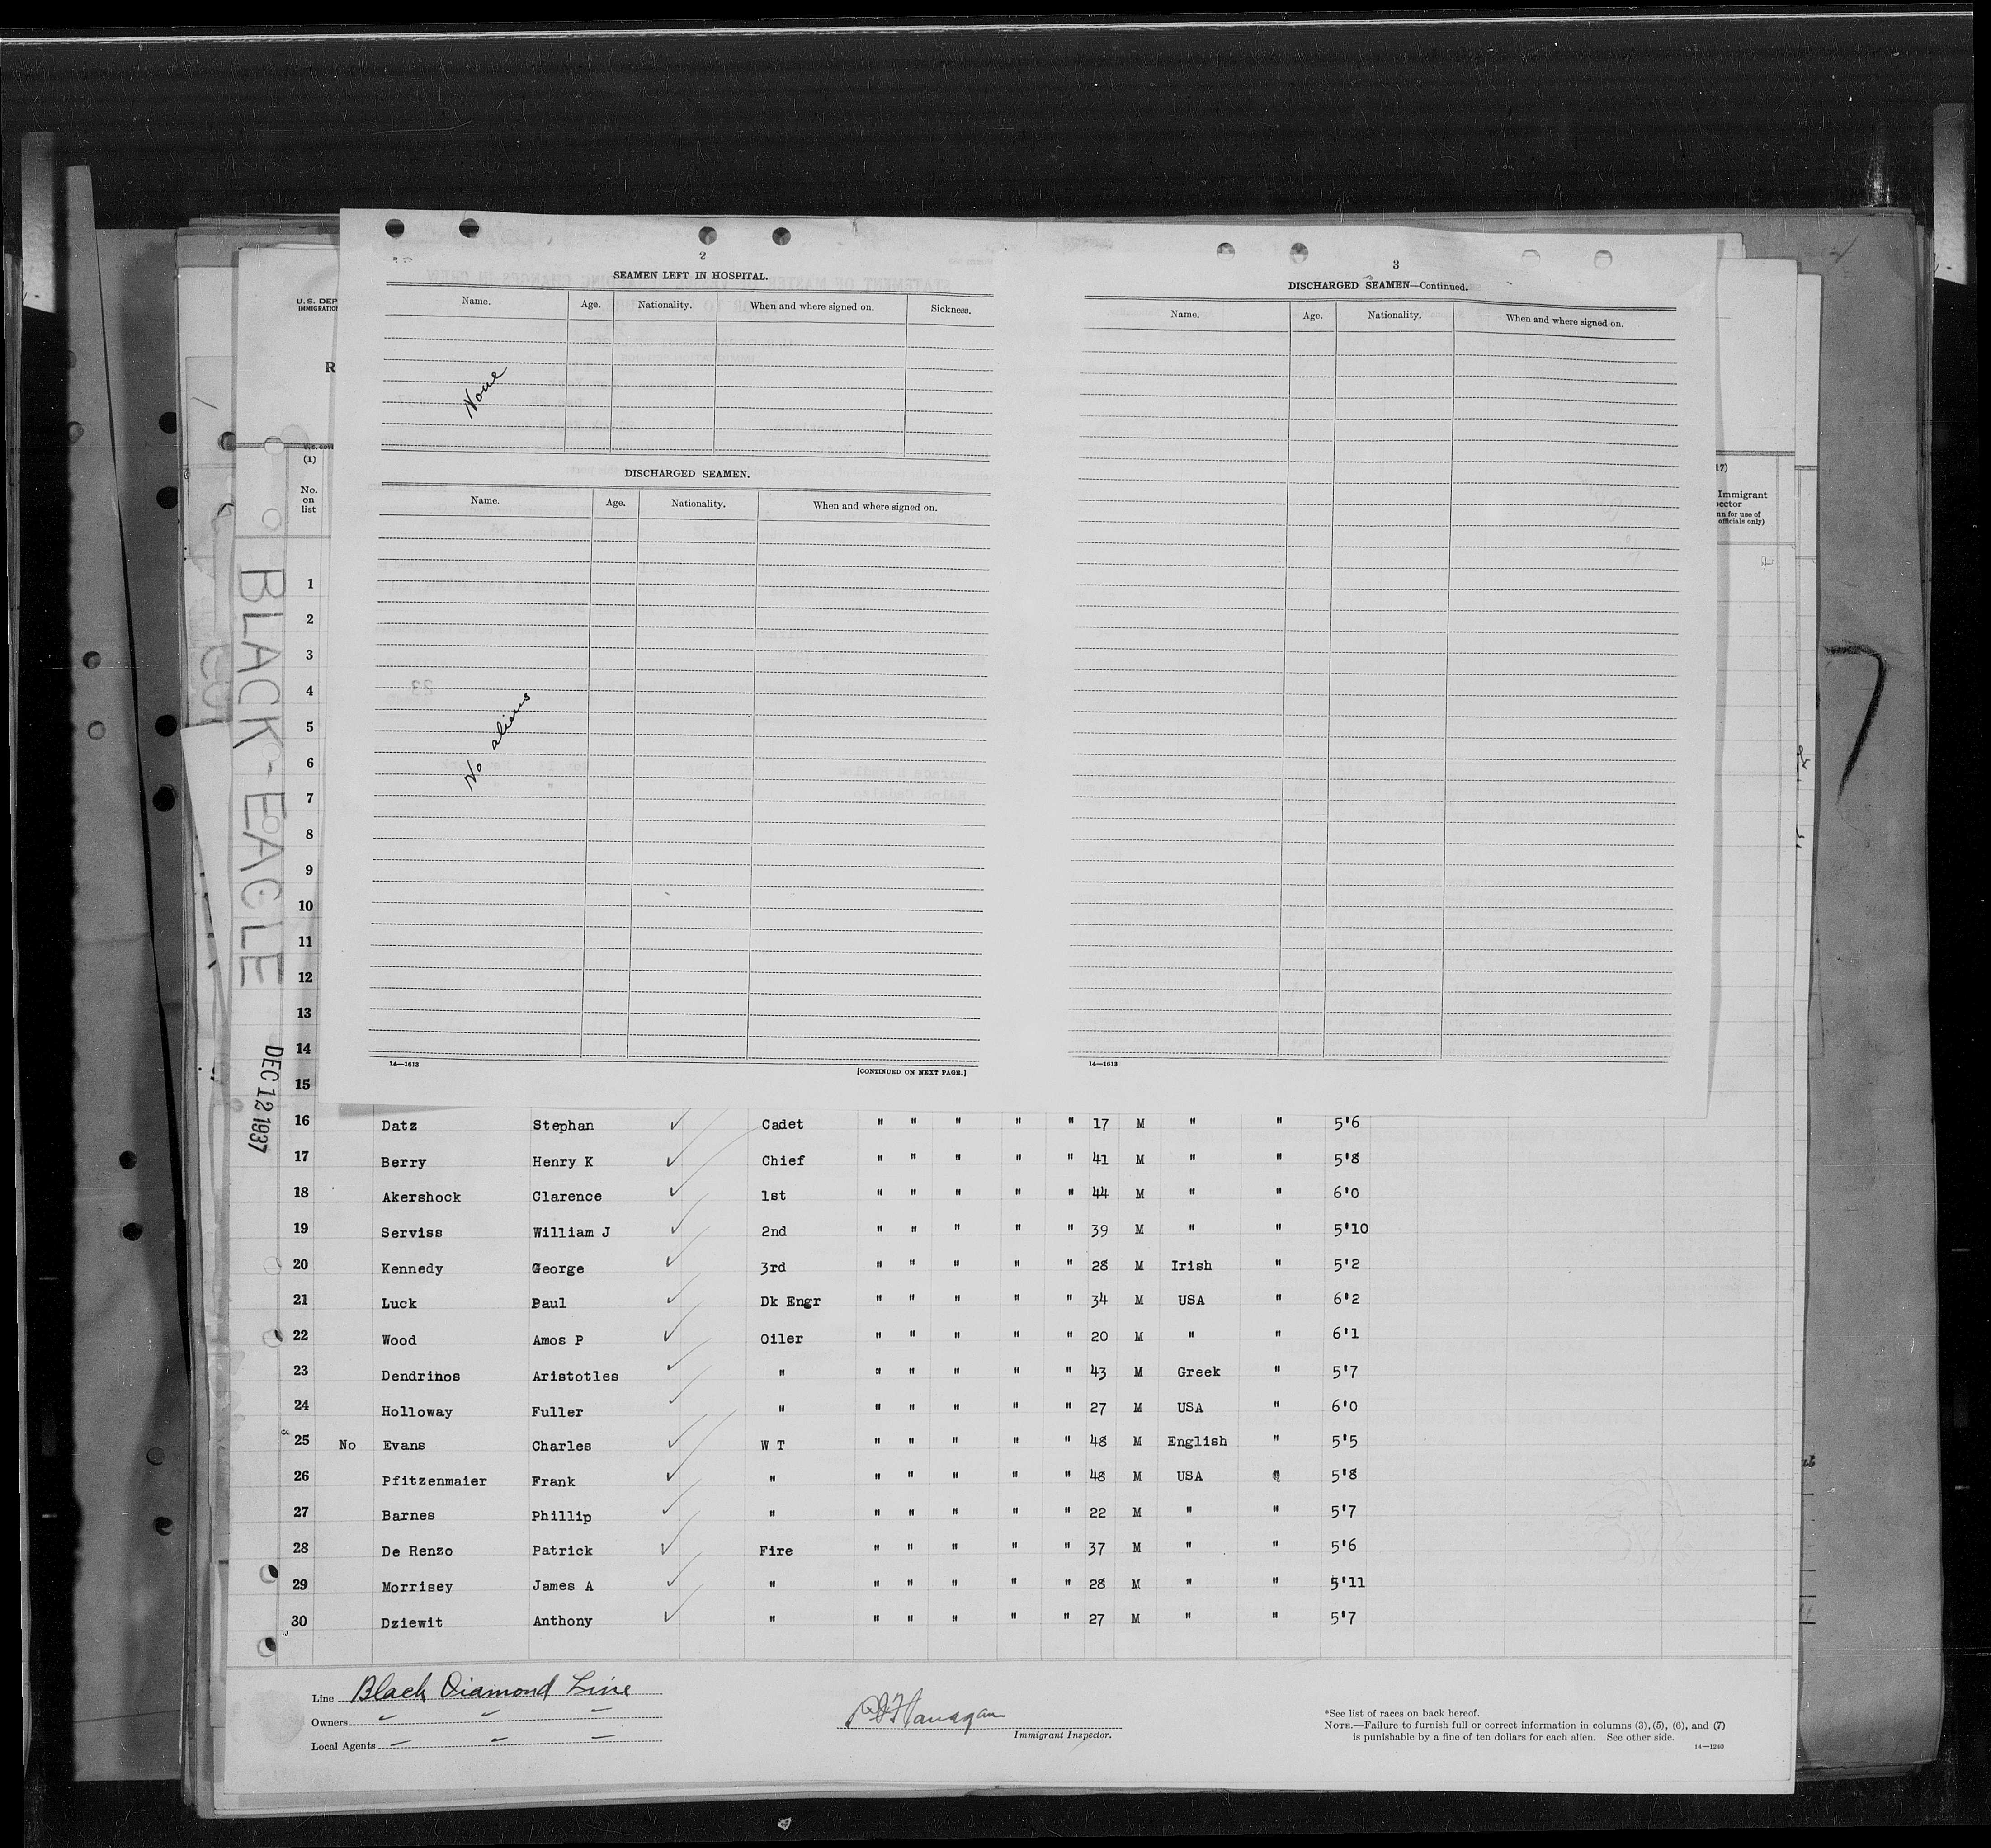 2
SEAMEN LEFT IN HOSPITAL.
Name. Age. Nationality. When and where signed on. Sickness.
None
DISCHARGED SEAMEN.
Name. Age. Nationality. When and where signed on.
No aliens
14—1613
[CONTINUED ON NEXT PAGE.]
3
DISCHARGED SEAMEN—Continued.
Name. Age. Nationality. When and where signed on.
14—1613
U. S. DEP
IMMIGRATION
R
(1)
No.
on
list
17)
Immigrant
officials only)
BLACK-EAGLE
DEC 12 1937
1
2
3
4
5
6
7
8
9
10
11
12
13
14
15
16 Datz Stephan ✓ Cadet " " " " " 17 M " " 5'6
17 Berry Henry K ✓ Chief " " " " " 41 M " " 5'8
18 Akershock Clarence ✓ 1st " " " " " 44 M " " 6'0
19 Serviss William J ✓ 2nd " " " " " 39 M " " 5'10
20 Kennedy George ✓ 3rd " " " " " 28 M Irish " 5'2
21 Luck Paul ✓ Dk Engr " " " " " 34 M USA " 6'2
22 Wood Amos P ✓ Oiler " " " " " 20 M " " 6'1
23 Dendrinos Aristotles ✓ " " " " " " 43 M Greek " 5'7
24 Holloway Fuller ✓ " " " " " " 27 M USA " 6'0
25 No Evans Charles ✓ W T " " " " " 48 M English " 5'5
26 Pfitzenmaier Frank ✓ " " " " " " 48 M USA " 5'8
27 Barnes Phillip ✓ " " " " " " 22 M " " 5'7
28 De Renzo Patrick ✓ Fire " " " " " 37 M " " 5'6
29 Morrisey James A ✓ " " " " " " 28 M " " 5'11
30 Dziewit Anthony ✓ " " " " " " 27 M " " 5'7
Line Black Diamond Line
Owners " " "
Local Agents " " "
Immigrant Inspector.
*See list of races on back hereof.
NOTE.—Failure to furnish full or correct information in columns (3), (5), (6), and (7)
is punishable by a fine of ten dollars for each alien. See other side.
14—1240